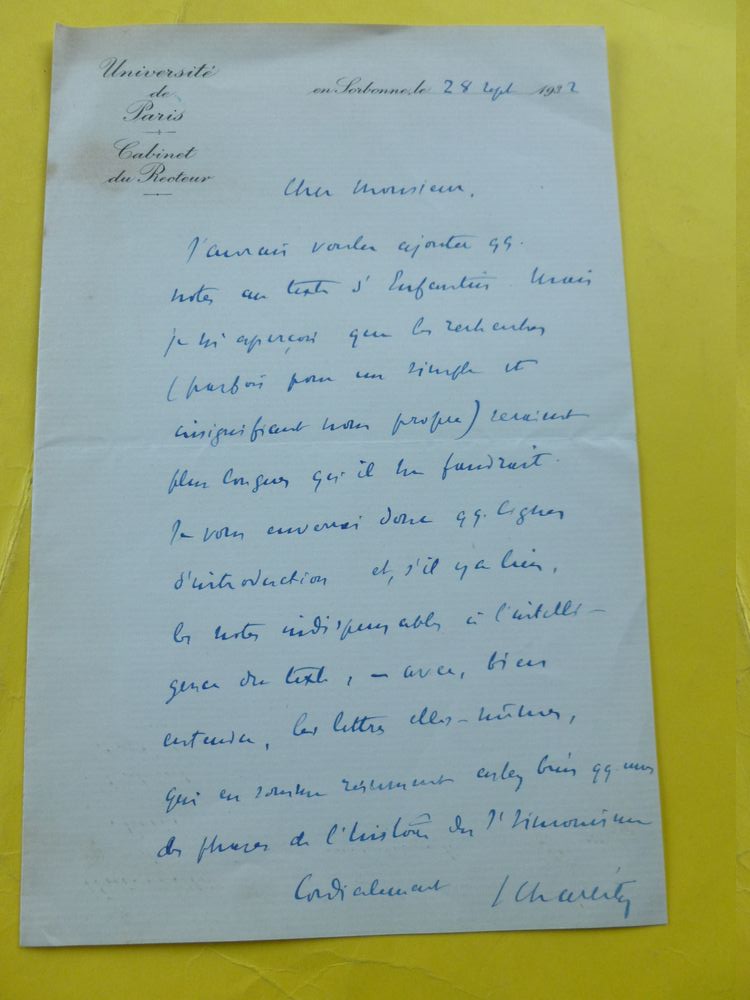 Université
de
Paris
Cabinet
du Recteur
en Sorbonne, le 28 sept 1932
Cher Monsieur,
J'aurais voulu ajouter qq.
notes au texte d'Enfantin. Mais
je m'aperçois que les recherches
(parfois pour un simple et
insignifiant nom propre) seraient
plus longues qu'il ne faudrait.
Je vous enverrai donc qq. lignes
d'introduction et, s'il y a lieu,
les notes indispensables à l'intelli-
gence du texte, – avec, bien
entendu, les lettres elles-mêmes,
qui en somme résument assez bien qq. unes
des phases de l'histoire du St Simonisme
Cordialement
S Charléty